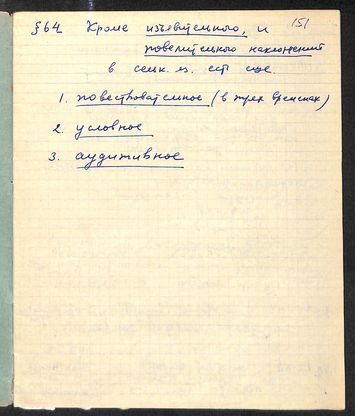 151
§ 64 Кроме изъявительного, и
повелительного наклонений
в сельк. яз. есть еще.
1. повествовательное (в трех временах)
2. условное
3. аудитивное